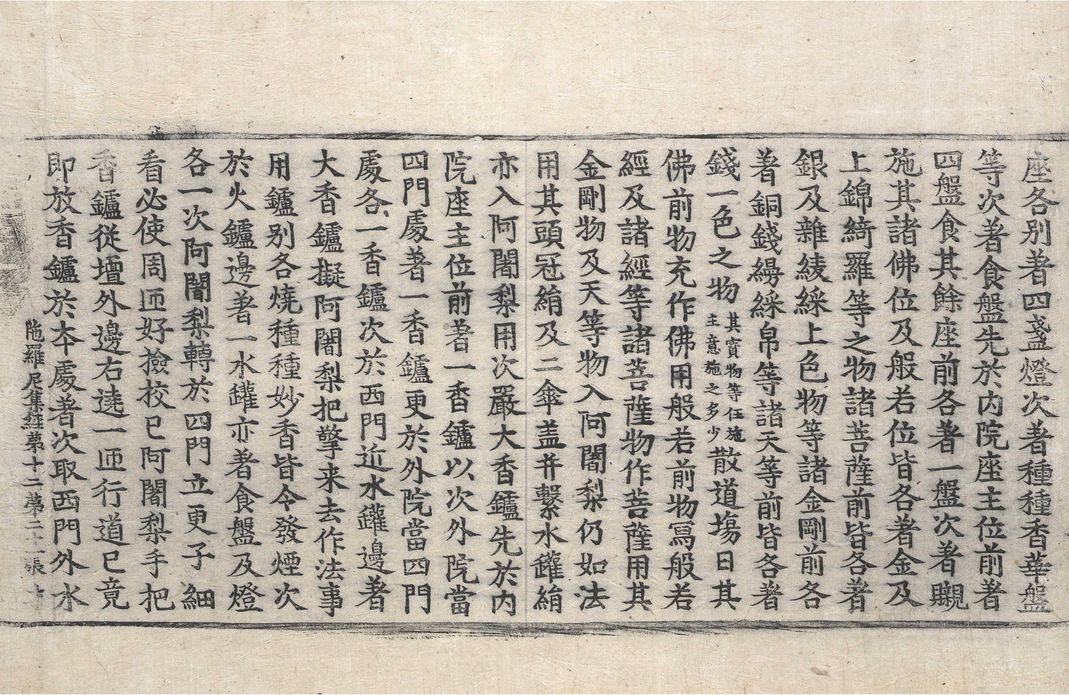 座各別著四盞燈次著種種香華盤
等次著食盤先於內院座主位前著
四盤食其餘座前各著一盤次著䞋
施其諸佛位及般若位皆各著金及
上錦綺羅等之物諸菩薩前皆各著
銀及雜綾綵上色物等諸金剛前各
著銅錢縵綵帛等諸天等前皆各著
錢一色之物其寶物等任施主意施之多少散道塲日其
佛前物充作佛用般若前物寫般若
經及諸經等諸菩薩物作菩薩用其
金剛物及天等物入阿闍梨仍如法
用其頭冠絹及二傘盖并繫水罐絹
亦入阿闍梨用次嚴大香鑪先於內
院座主位前著一香鑪以次外院當
四門處著一香鑪更於外院當四門
處各一香鑪次於西門近水罐邊著
大香鑪擬阿闍梨把擎来去作法事
用鑪別各燒種種妙香皆令發煙次
於火鑪邊著一水罐亦著食盤及燈
各一次阿闍梨轉於四門立更子細
看必使周匝好撿校已阿闍梨手把
香鑪從壇外邊右遶一匝行道已竟
陁羅尼集經第十二第二十一張
即放香鑪於本處著次取西門外水